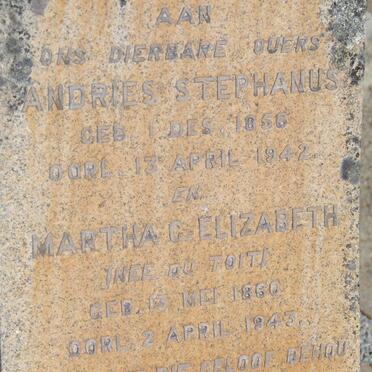 AAN
ONS DIERBARE OUERS
ANDRIES STEPHANUS
GEB. 1 DES. 1856
OORL. 13 APRIL 1942
EN
MARTHA C. ELIZABETH
(NEE DU TOIT)
GEB. 15 MEI 1860
OORL. 2 APRIL 1943.
DIE GELOOF BEHOU